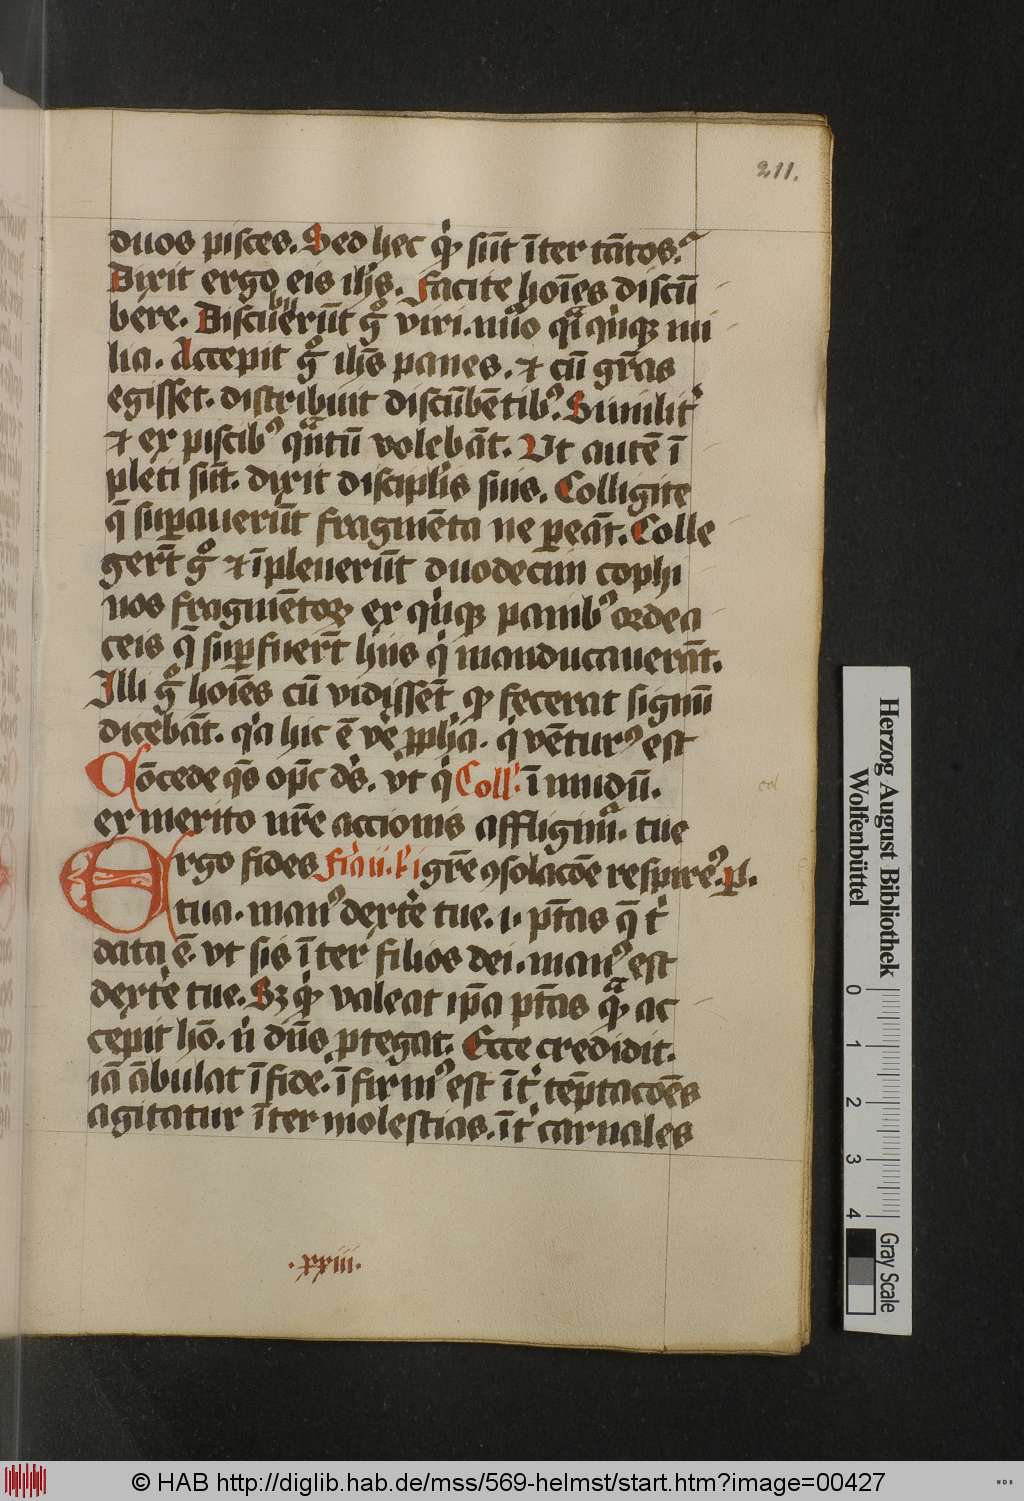 211.
duos pisces. Sed hec qͥd sūt īter tātos.
Dixit ergo eis ih̄s. Facite hoīes discū
bere. Discubuerūt gͦ viri. nūo qͣi qͥnqꝫ mi
lia. Accepit gͦ ih̄s panes. ⁊ cū gr̄as
egisset. distribuit discūbētibꝰ. Similitͬ
⁊ ex piscibꝰ qͣntū volebāt. Ut autē ī
pleti sūt. dixit discipl̓is suis. Colligite
q̄ suꝑauerūt fragmēta ne ꝑeāt. Colle
gerūt gͦ ⁊ īpleuerūt duodecim cophi
nos fragmētoꝝ ex qͥnqꝫ panibꝰ ordea
ceis q̄ suꝑfuer̄t hiis qͥ manducauerāt.
Illi gͦ hoīes cū vidissēt qd̓ fecerat signū
dicebāt. qͥa hic ē ve̓ ꝓph̓a. qͥ vēturꝰ est
Cōcede qs̄ op̄c ds̓. vt qͥ Coll̓. ī mūdū.
ex merito nr̄e accionis affligimͬ. tue
Ergo fides gr̄e ꝯsolacōe respiremꝰ. ꝑ.
tua. manꝰ dextͤe tue. i. pt̄as q̄ tͥ
data ē. vt sis īter filios dei. manꝰ est
dextͤe tue. Sꝫ qͥd valeat ip̄a pt̄as qͣm ac
cepit hō. nͥ dūs ꝓtegat. Ecce credidit.
iā ābulat ī fide. īfirmꝰ est īt̓ tēptacōes
agitatur īter molestias. īt̓ carnales
.xxiii.
col
Herzog August Bibliothek
Wolfenbüttel
0 1 2 3 4
Gray Scale
© HAB http://diglib.hab.de/mss/569-helmst/start.htm?image=00427